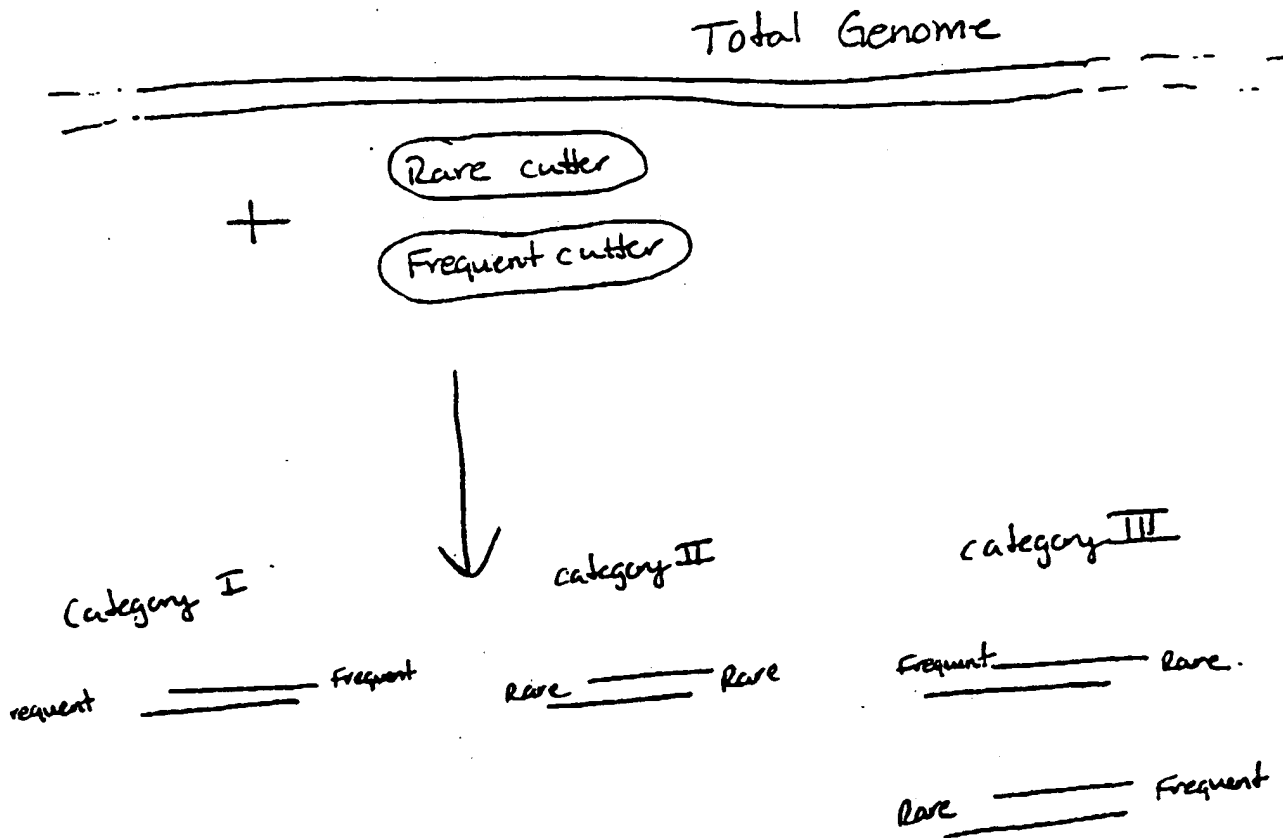 Total Genome
+
Rare cutter
Frequent cutter
Category I
category II
category III
requent
Frequent
Rare
Rare
Frequent
Rare.
Rare
Frequent